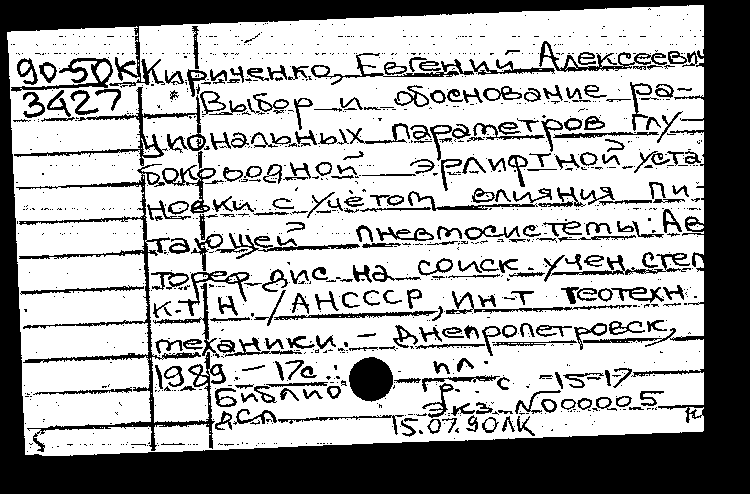 90-50К Кириченко, Евгений Алексеевич
3427 * Выбор и обоснование ра-
циональных параметров глу-
боководной эрлифтной уста
новки с учётом влияния пи-
тающей пневмосистемы: Ав
тореф дис. на соиск. учен. степ
к.т.н. / АНСССР, ин-т геотехн.
механики. – Днепропетровск,
1989. – 17с.: ил.
Библиогр. с. 15-17
ДСП Экз. №000005
15.07.90ЛК